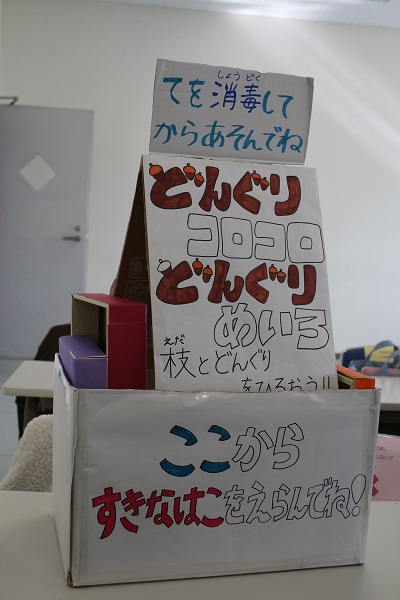 しょうどく
てを消毒して
からあそんでね
どんぐり
コロコロ
どんぐり
めいろ
えだ
枝とどんぐり
をひろおう!!
ここから
すきなはこをえらんでね!